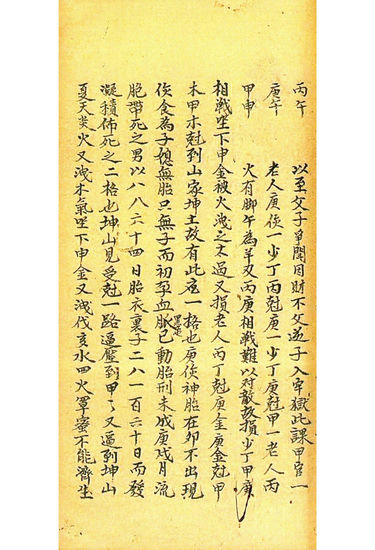 丙午 以至父子爭鬧因財不父逆子入牢獄此課甲官一
庚午 老人庚侯一少丁丙尅庚一少丁庚尅甲一老人丙
甲申 火有脚午為羊刃丙庚相戰難以对敵故損少丁甲庚
相戰坐下申金被火洩之不過又損老人丙丁尅庚金庚金尅甲
木甲木尅到山家坤土故有此危一格也庚侯神胎在夘不出現
侯食為子媳無胎只無子而初孕血脉已動胎刑未成庚戌月流
胞帶死之男以八八六十四日胎衣裹子二八一百六十日而發
凝積佈死之二格也坤山見受尅一路逼壓到甲々又逼到坤山
夏天炎火又洩木氣坐下申金又洩伐亥水四火罩蜜不能濟生